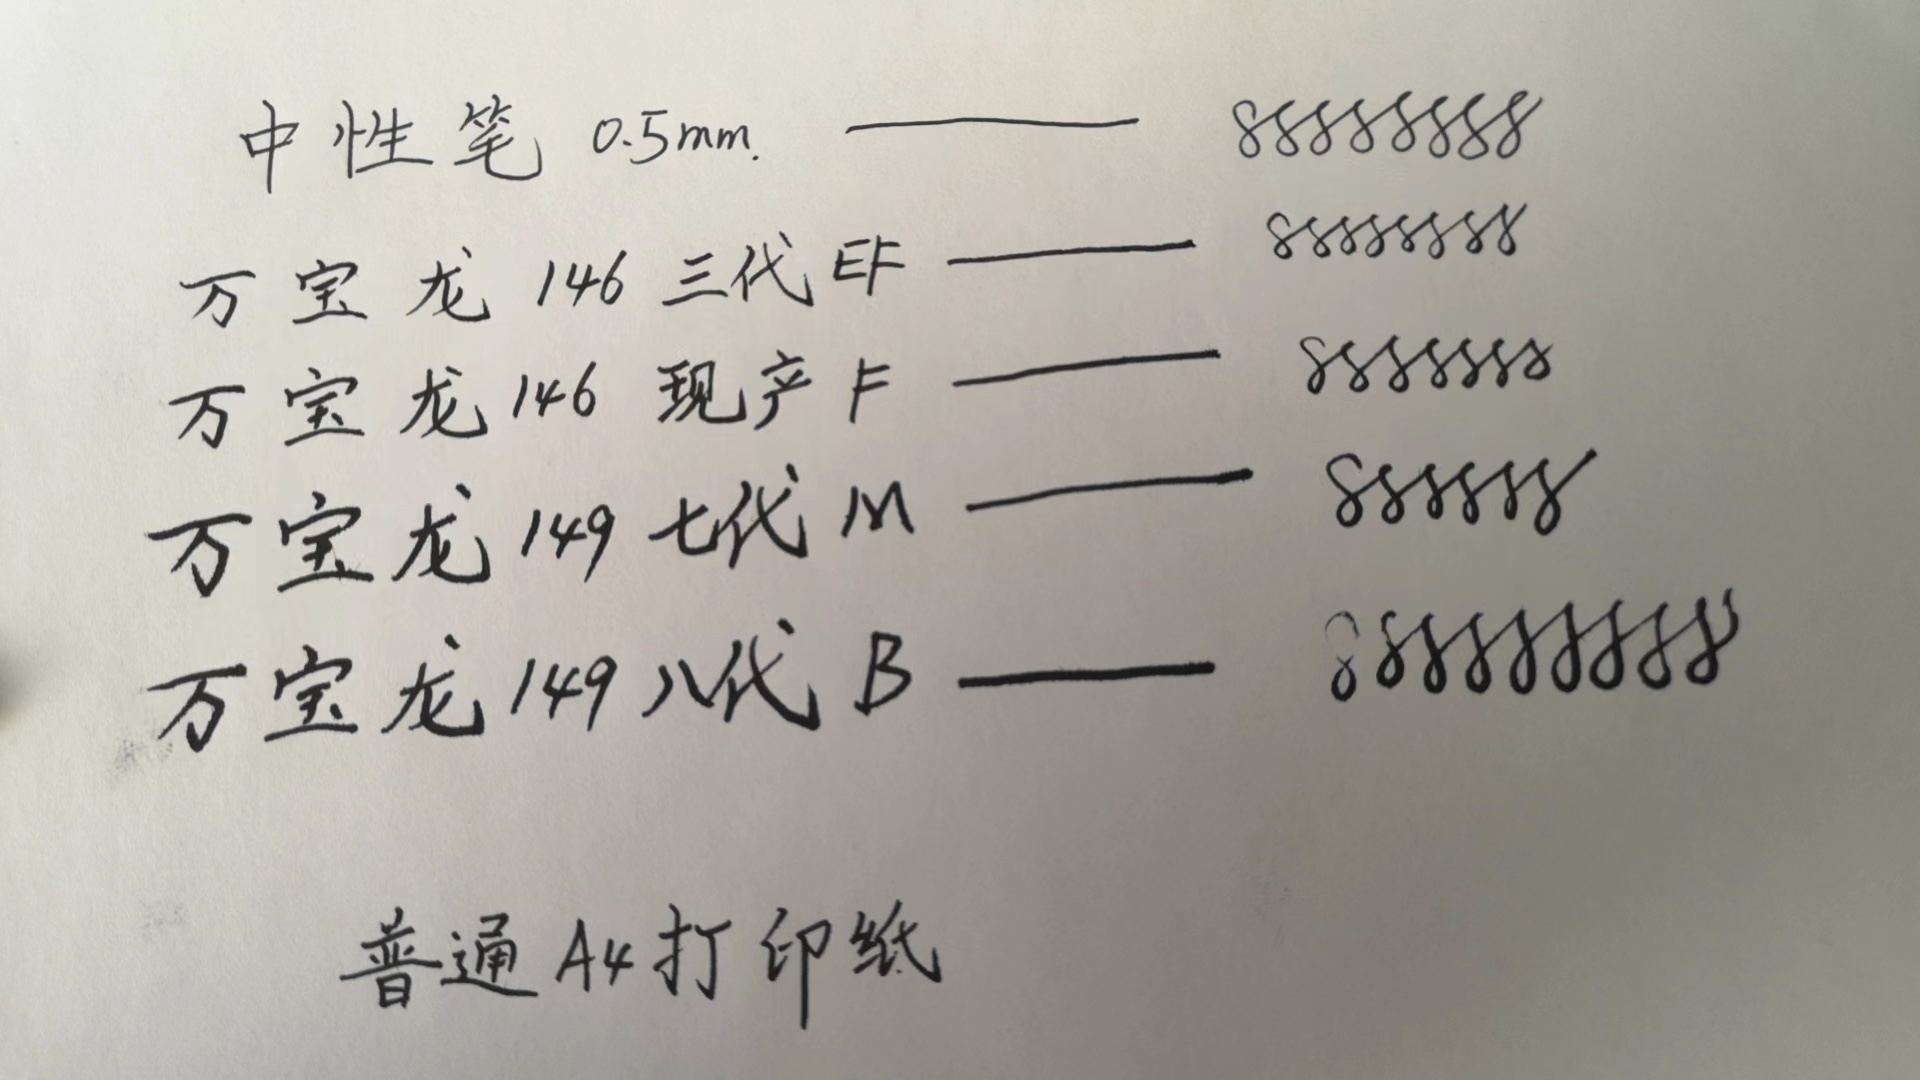 中性笔 0.5mm. 88888888
万宝龙 146 三代 EF 88888888
万宝龙 146 现产 F 8888888
万宝龙 149 七代 M 888888
万宝龙 149 八代 B 888888888
普通A4打印纸